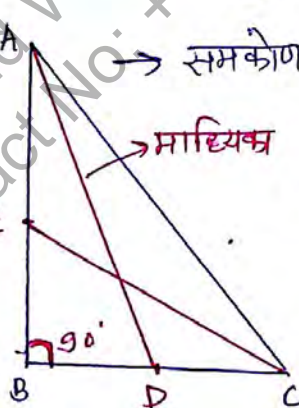 A
→ समकोण
→ माध्यिका
90°
B
D
C
act No: +